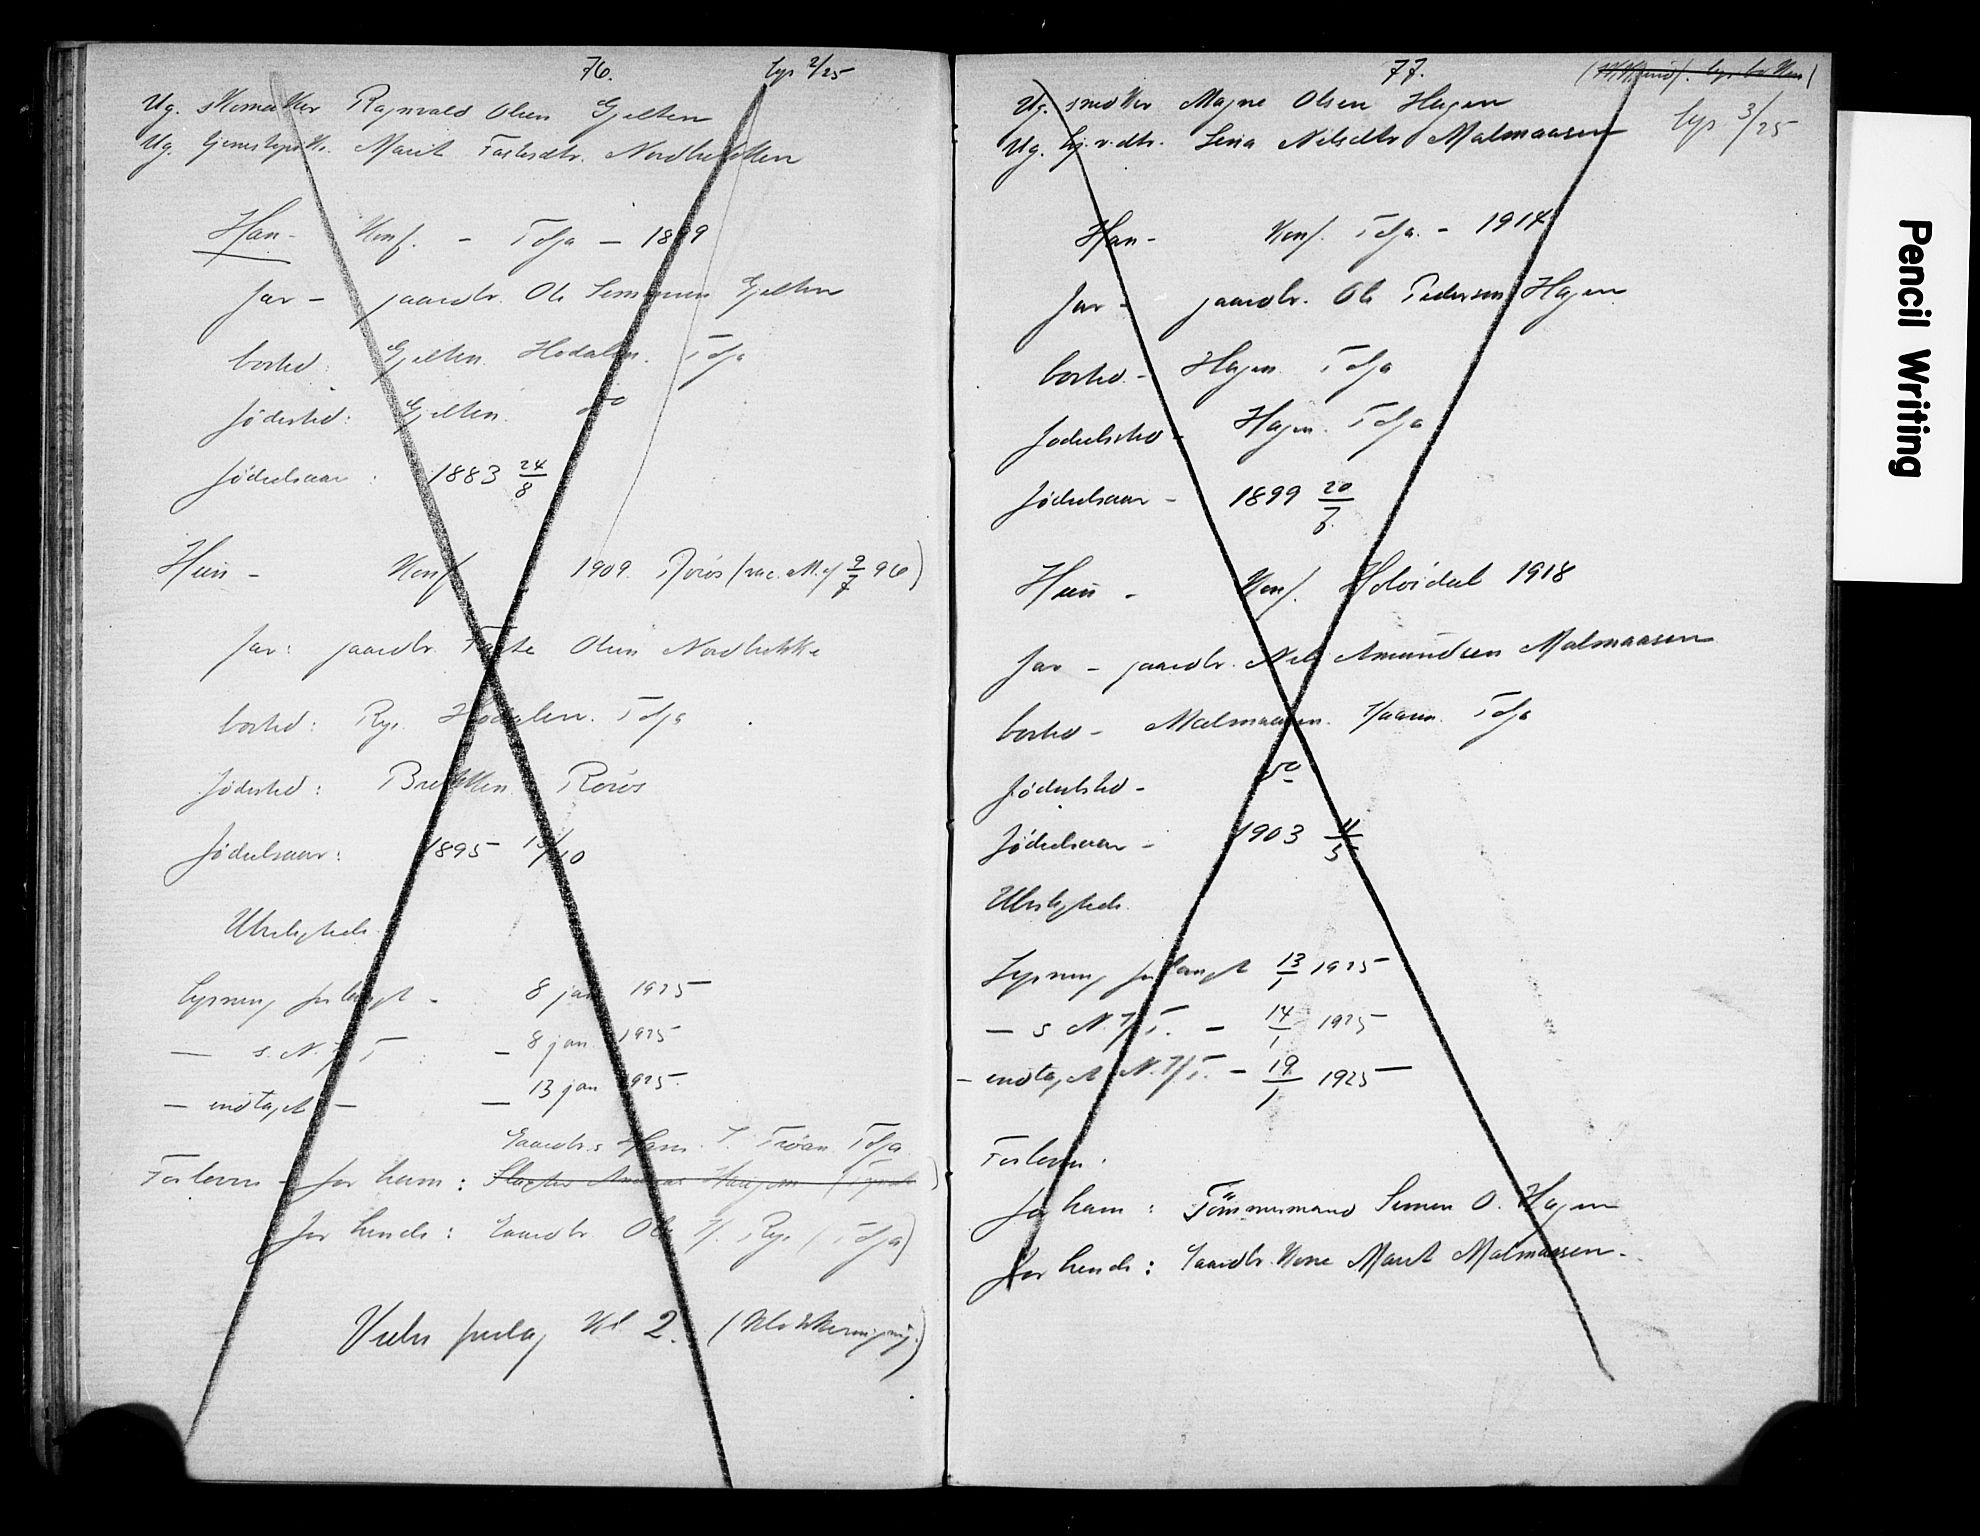 76.
lys 2/25
Ug. skomaker Ragnvald Olsen Gjelten
Ug. Marit Fastesdtr. Nordbekken
Han - Konf. - Tolga - 1899
far - gaardbr. Ole Simensen Gjelten
bosted: Gjelten Hodalen. Tolga
födested: Gjelten. do
födselsaar: 1883 24/8
Hun - Konf 1909. Röros (vac. att. af 9/7 96)
far: gaardbr. Faste Olsen Nordbekken
bosted: Rye. Hodalen. Tolga
födested: Brekken Röros
födselsaar: 1895 /10
Ubeslegtede
Lysning forlangt - 8 jan 1925
— s. N. / T — 8 jan 1925
— indtaget — — 13 jan 1925.
Gaardbr. Hans T. Tröan Tolga
Forlover - for ham: Slagter Haugen
for hende: Gaardbr Ole H. Rye (Tolga)
Vies fredag Kl 2.
77.
lys. 3/25
Ug. snedker Magne Olsen Hagen
Ug. Lena Nilsdtr Malmaasen
Han - Konf. Tolga. - 1914
far - gaardbr. Ole Pedersen Hagen
bosted - Hagen Tolga
födselsted - Hagen. Tolga
födselsaar - 1899 20/6
Hun - Konf. Holöidal 1918
far - gaardbr. Nils Amundsen Malmaasen
bosted - Malmaasen. Tolga
födselsted - do
födselsaar - 1903 11/5
Ubeslegtede.
Lysning forlangt 13/1 1925
— s N. / T. — 14/1 1925
— indtaget N. / T. — 19/1 1925
Forlovere:
for ham: Tömmermand Simen O. Hagen
for hende: Gaardbr. Kone Marit Malmaasen.
Pencil Writing